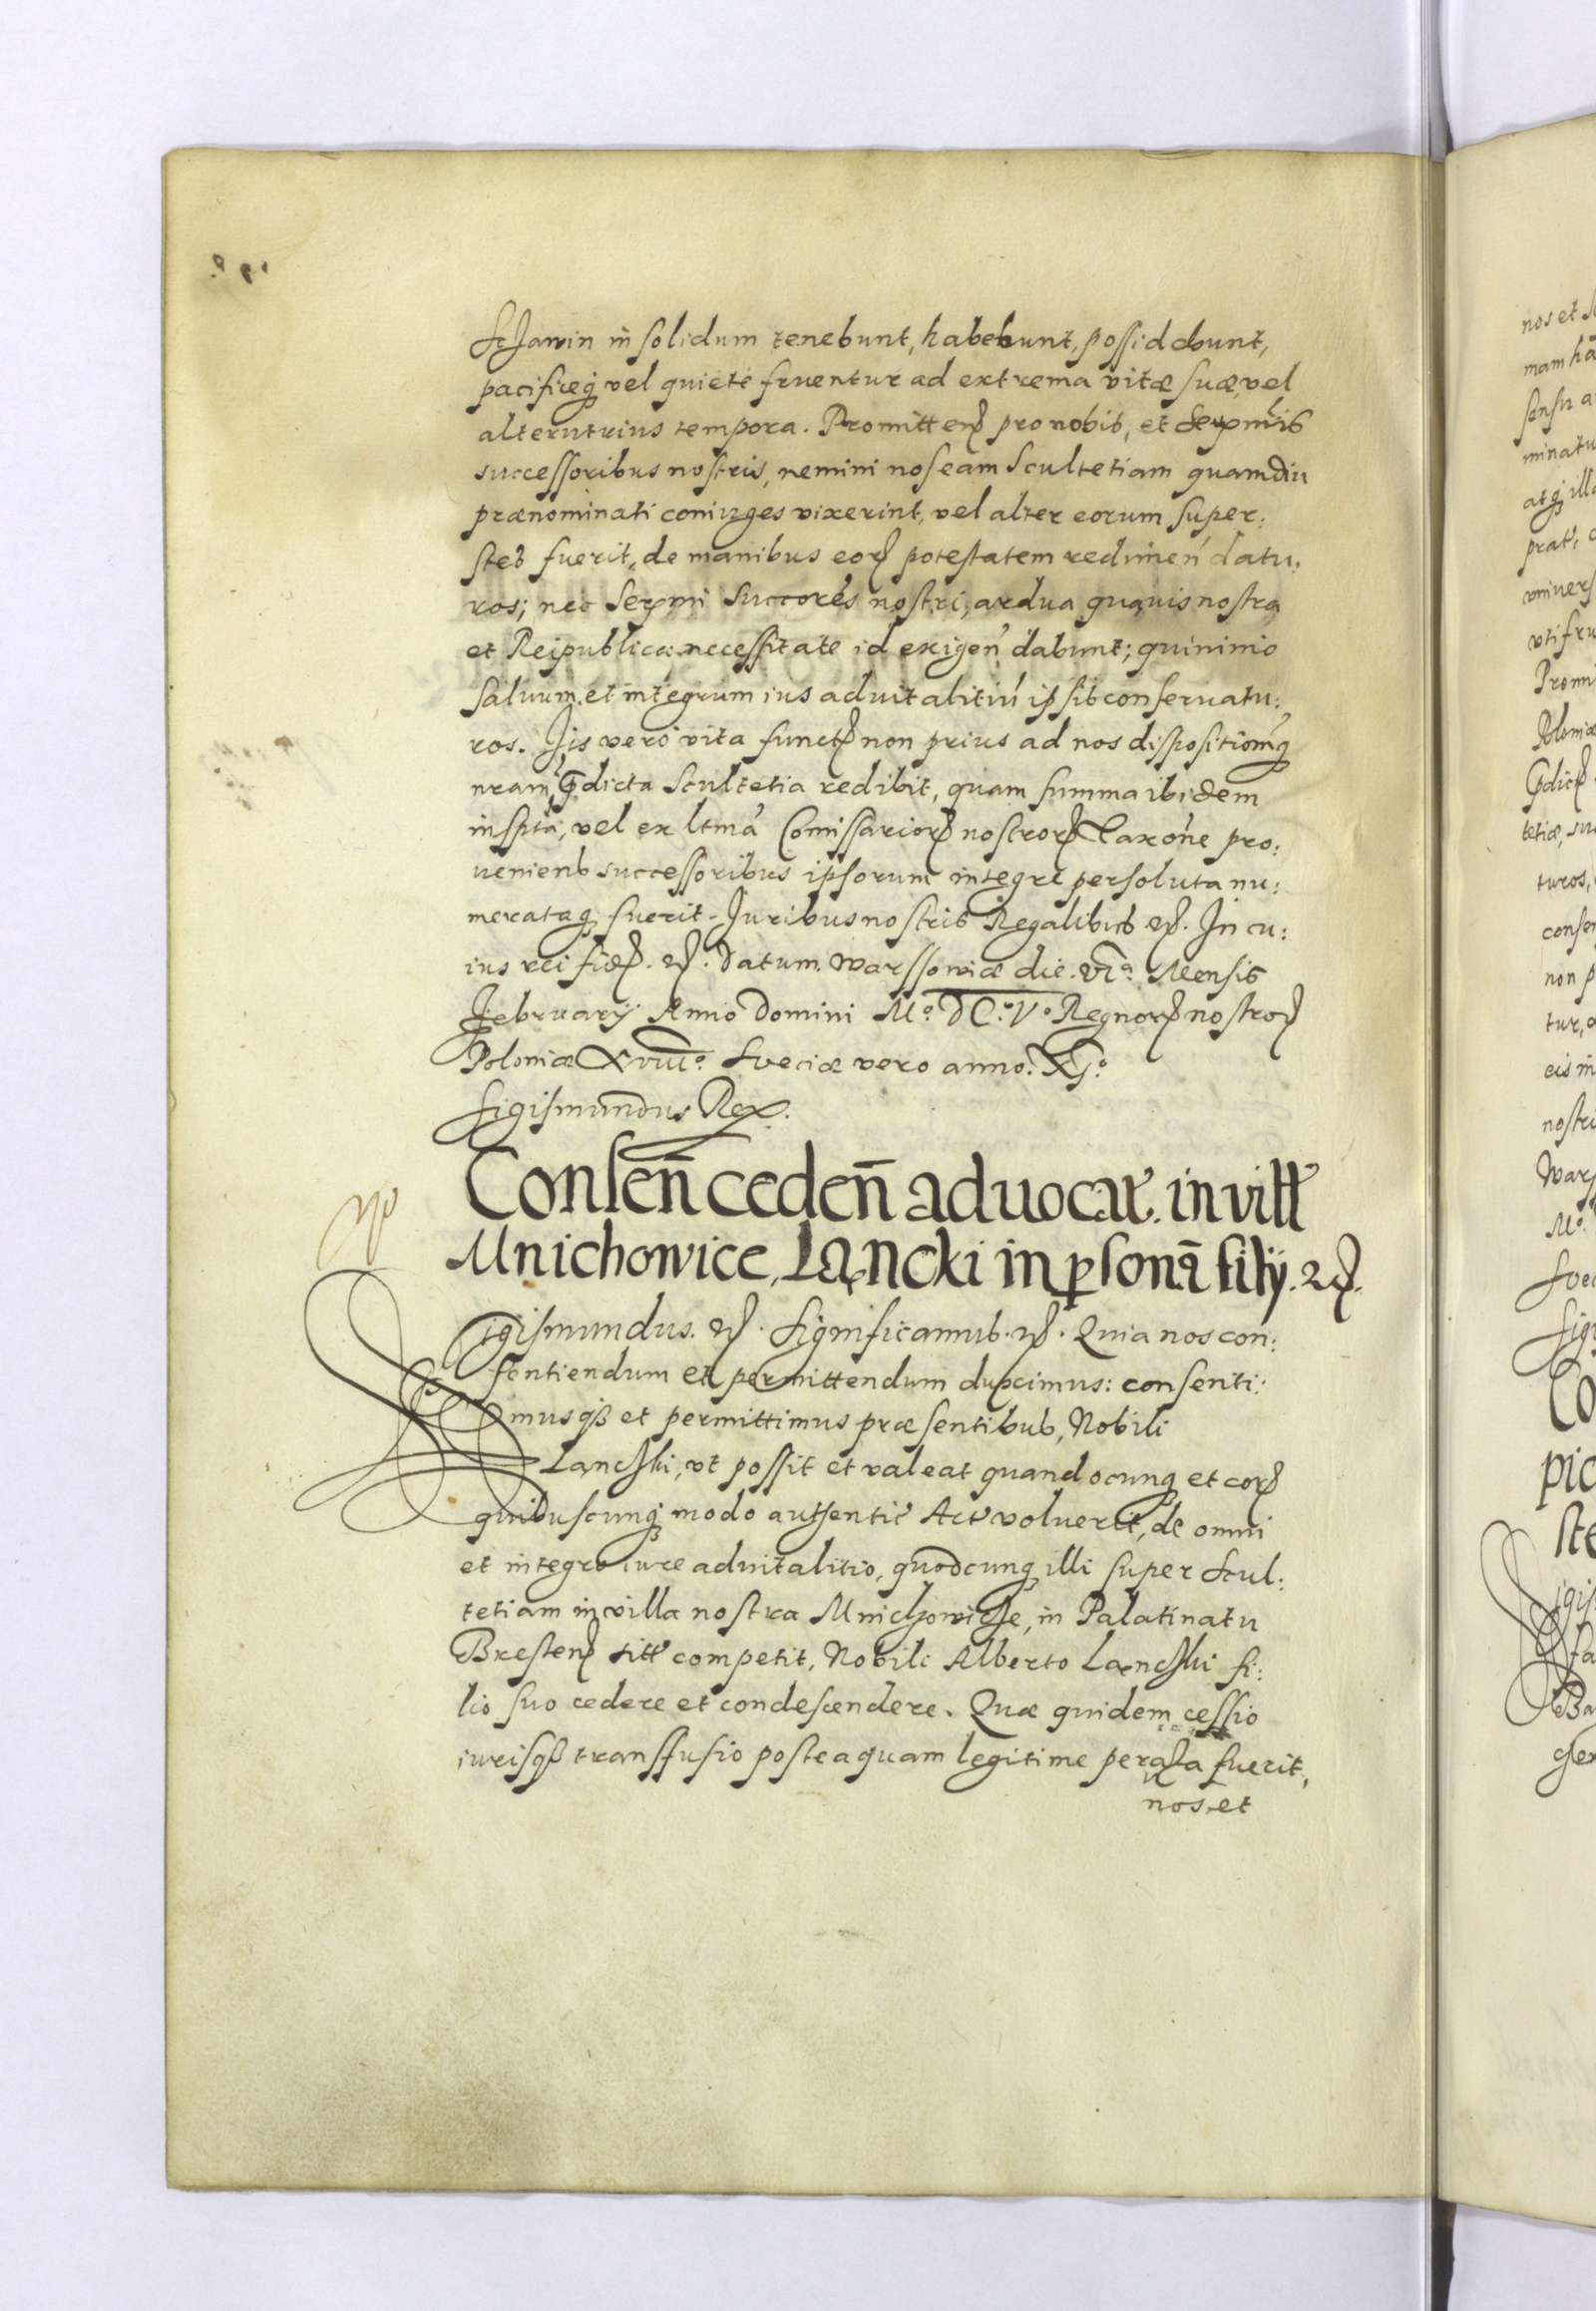 St Janin in solidum tenebunt, habebunt, possidebunt,
pacificeq̨ vel quiete fruentur ad extrema vitæ suæ, vel
alterutrius tempora. Promitten̄ pro nobis, et Serxmis
successoribus nostris, nemini nos eam Scultetiam quamdiu
prænominati coniuges vixerint, vel alter eorum super:
stes fuerit, de manibus eor potestatem redimen̄ datu:
ros; nec Serxmi Succores nostri, ardua quavis nostra
et Reipublicæ necessitate id exigen̄ dabunt; quinimo
salvum et integrum ius advitalitiū ipsis conservatu:
ros. Iis vero vita funct non prius ad nos dispositionēq̨
nram, p̄dicta Scultetia redibit, quam summa ibidem
inspta, vel ex ltma Comissarior nostror Taxone pro:
veniens successoribus ipsorum integre persoluta nu:
merataq̨ fuerit. Iuribus nostris Regalibus etc. In cu:
ius rei fid. etc. Datum Warssoviæ die. VIa. Mensis
February Anno Domini Mo. DC. Vo Regnor nostror
Poloniæ XVIIIo. Sveciæ vero anno. XIo.
Sigismundus Rex.
Consen̄ ceden̄ advocat. in vill
Mnichowice, Lącki in psonā filÿ. etc.
Sigismundus. etc. Significamus. etc. Quia nos con:
sentiendum et permittendum duximus: consenti:
musq̨ et permittimus præsentibus, Nobili
Lancski, ut possit et valeat quandocunq̨ et cor
quibuscunq̨ modo authentic̄ Act̄ voluerit, de omni
et integro iure advitalitio, quodcunq̨ illi super Scul:
tetiam in villa nostra Mnichowicze, in Palatinatu
Bresten sitt competit, Nobili Alberto Lancski fi:
lio suo cedere et condescendere. Quæ quidem cessio
iurisq̨ transfusio posteaquam legitime peracta fuerit,
nos et